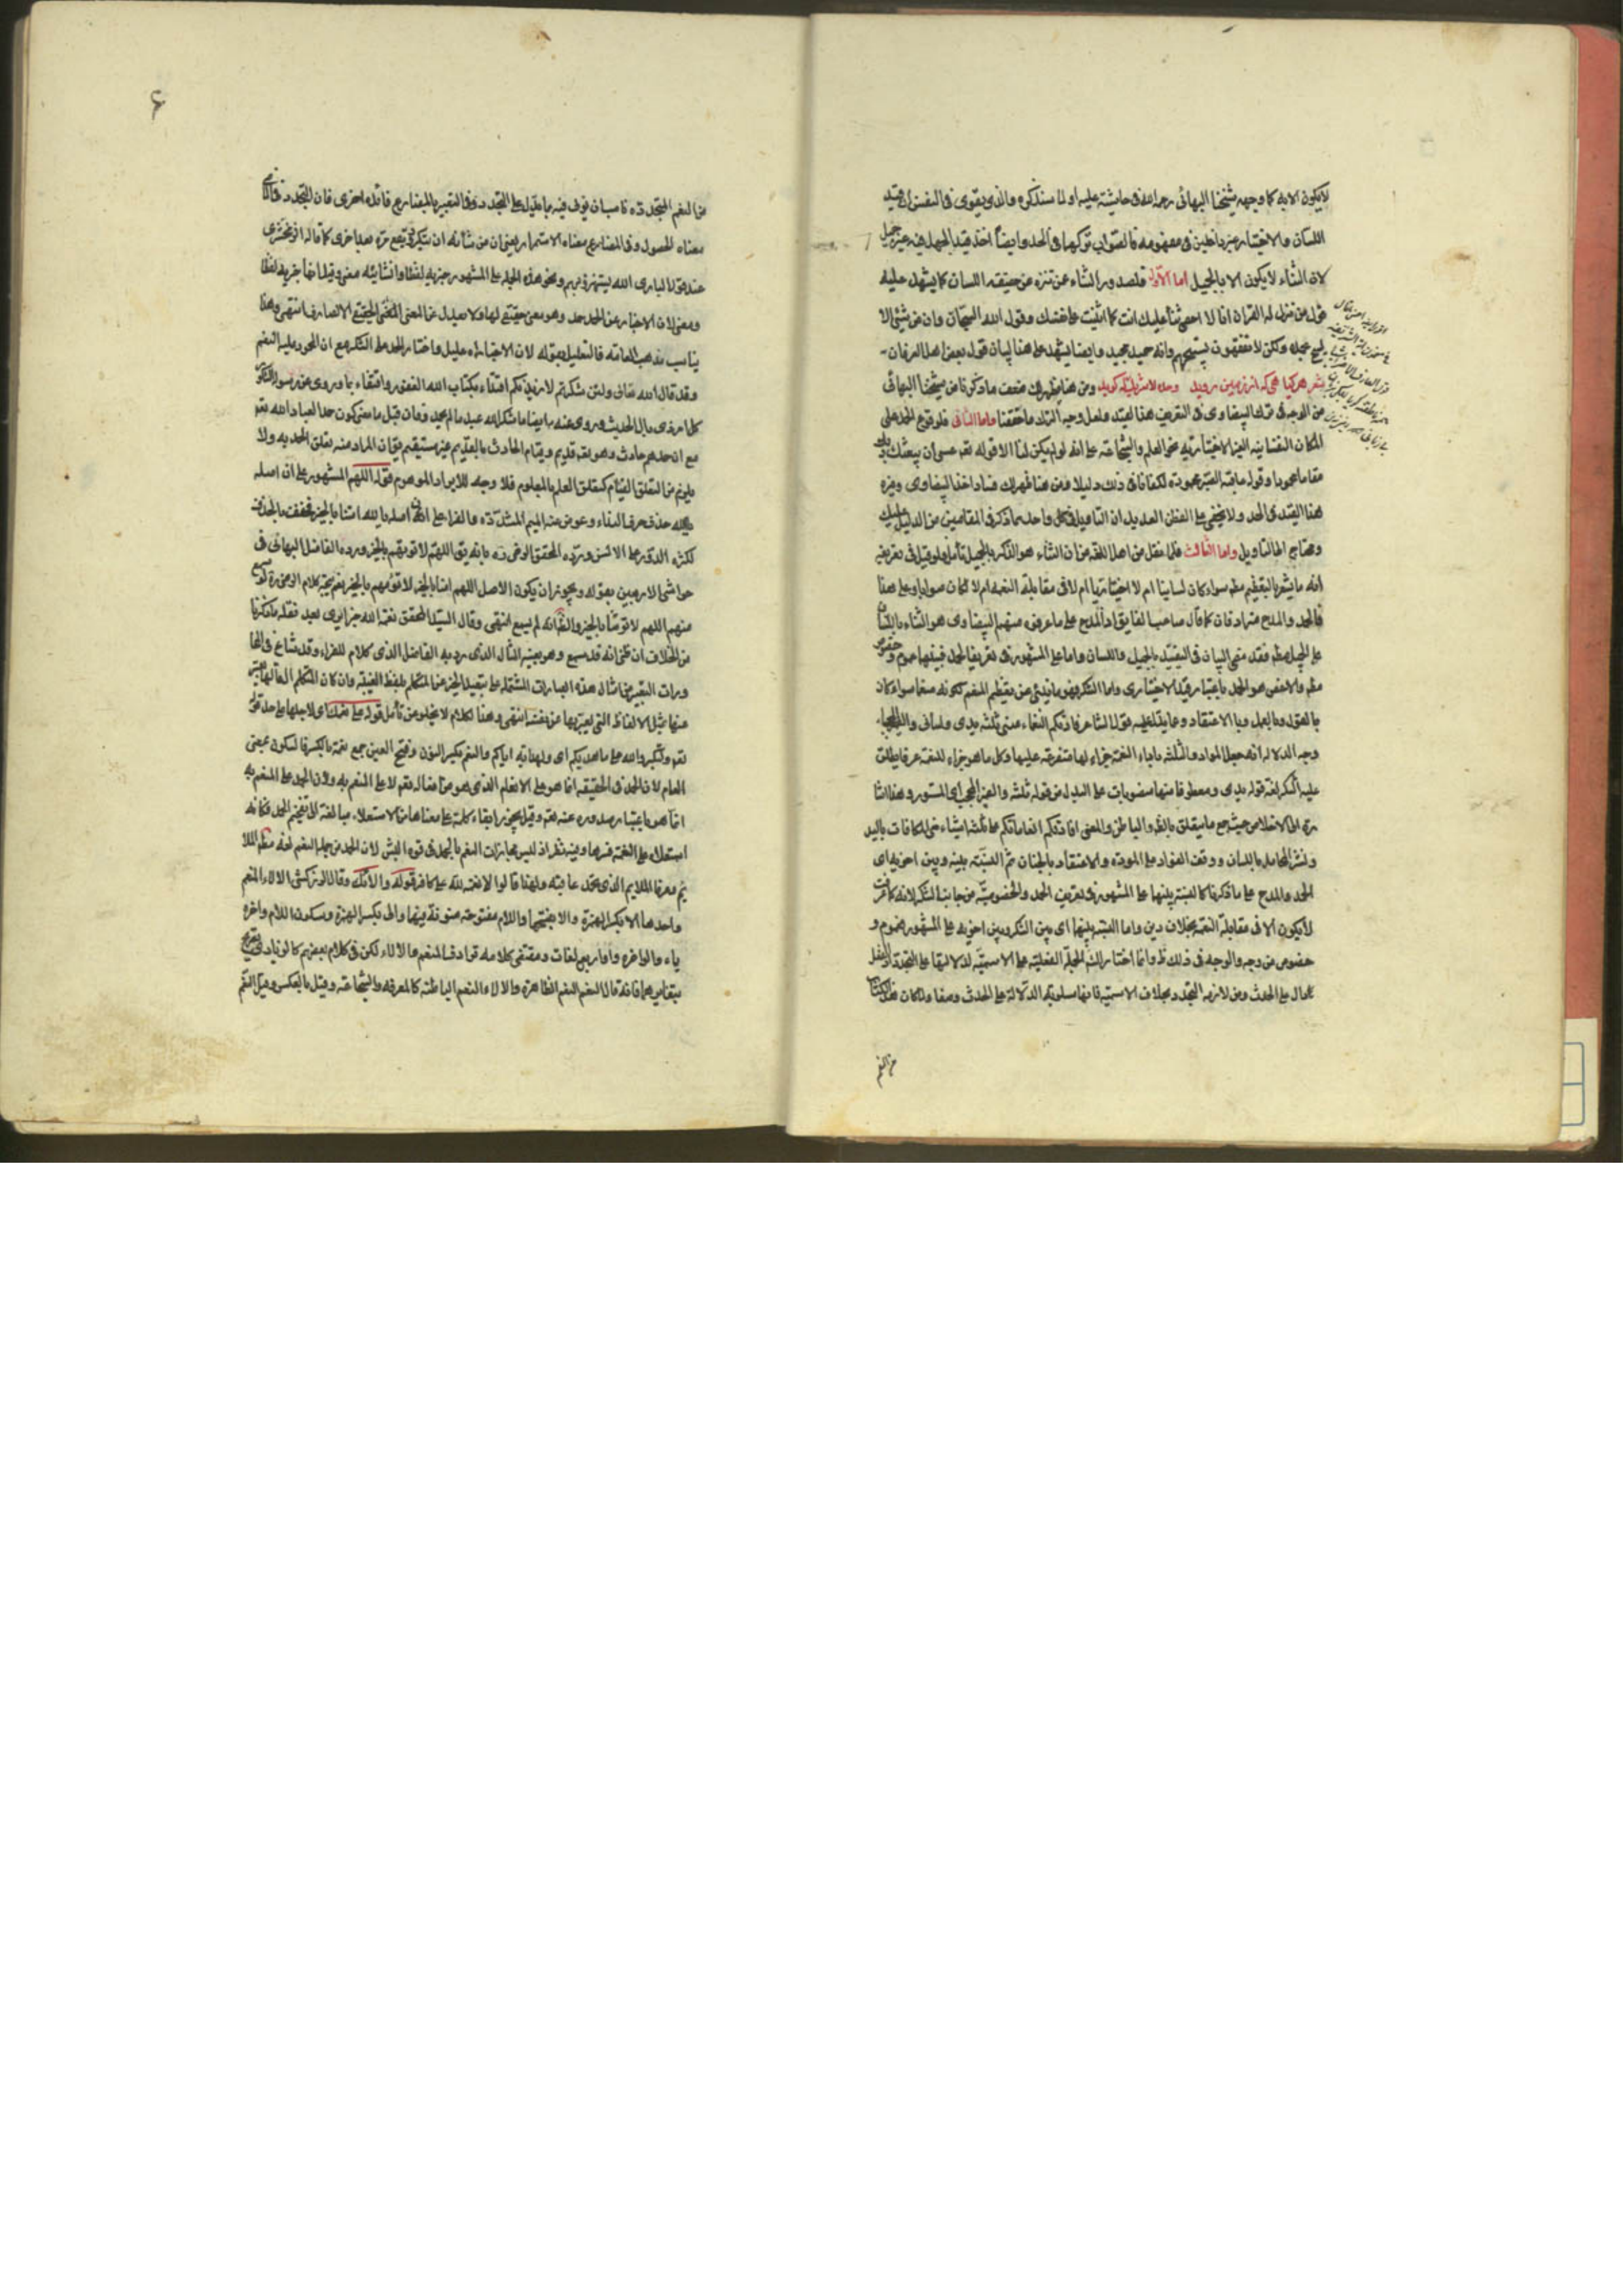 لا يكون الا به كما وجهه شيخنا البهائى رحمه الله فى حاشيته عليه او لما سنذكره والذى يقوى فى النفس ان قيد
اللسان والاختيار غير داخلين فى مفهومه فالصواب تركهما فى الحد وايضا اخذ قيد الجميل فيه غير جميل
لان الثناء لا يكون الا بالجميل اما الاول فلصدور الثناء عمن تنزه عن حقيقة اللسان كما يشهد عليه
قول من نزل له القران انا لا احصى ثناء عليك انت كما اثنيت على نفسك وقول الله السبحان وان من شئ الا
يسبح بحمده ولكن لا تفقهون تسبيحهم وانه حميد مجيد وايضا يشهد على هذا البيان قول بعض اهل العرفان
شعر هر كيا هى كه از زمين رويد وحده لا شريك له كويد ومن هنا يظهر لك ضعف ما ذكرنا من شيخنا البهائى
من الوجه فى ترك البيضاوى فى التعريف هذا القيد ولعل وجه الترك ما حققنا واما الثانى فلوقوع الحمد على
المكان النفسانيه الغير الاختياريه نحو العلم والشجاعة على انه لو لم يكن لنا الا قوله تعه عسى ان يبعثك ربك
مقاما محمودا وقوله عاقبة الصبر محمودة لكفانا فى ذلك دليلا فمن هنا ظهر لك فساد اخذ البيضاوى وغيره
هذا القيد فى الحد ولا يخفى على الفطن العديل ان التاويل فى كل واحد مما ذكر فى المقامين من الدليل عليك
ويحتاج الى التاويل واما الثالث فلما نقل من اهل اللغه من ان الثناء هو الذكر بالجميل تأمل ولو قيل فى تعريفه
انه ما يشعر بالتعظيم مطم سواء كان لسانيا ام لا اختياريا ام لا فى مقابلة النعمة ام لا لكان صوابا وعلى هذا
فالحمد والمدح مترادفان كما قال صاحب الفايق اذ المدح على ما عرفه منهم البيضاوى هو الثناء باللسان
على الجميل مطم فقد منى البيان فى التقييد بالجميل واللسان واما على المشهور فى تعريف الحمد فبينهما عموم وخصوص
مطم والاخص هو الحمد باعتبار قيد الاختيارى واما الشكر فهو ما ينبئ عن تعظيم المنعم لكونه منعما سواء كان
بالقول وبالعمل وبالاعتقاد ومما يدل عليه قول الشاعر افادتكم النعماء منى ثلثه يدى ولسانى والضمير المحجبا
وجه الدلاله انه جعل المواد والثلثه بازاء النعمة جزاء لها متفرعة عليها وكل ما هو جزاء للنعمة عرفا يطلق
عليه الشكر لغة قوله يدى ومعطوفاتها منصوبات على البدل من قوله ثلثه والضمير المحجب اى المستور وهذا اشا
رة الى الاخلاص حيث جمع ما يتعلق بالظاهر والباطن والمعنى افادتكم انعاماتكم على ثلثه اشياء منى المكافات باليد
ونشر المحامد باللسان ووقف الفؤاد على المودة والاعتقاد بالجنان ثم النسبة بينه وبين اخويه اى
الحمد والمدح على ما ذكرنا كالنسبة بينهما على المشهور فى تعريف الحمد والخصوصية من جانب الشكر لانه كما عرفت
لا يكون الا فى مقابلة النعمة بخلاف دين واما النسبة بينهما اى بين الشكر وبين اخويه على المشهور فعموم و
خصوص من وجه والوجه فى ذلك ظ وانما اختار الجملة الفعلية على الاسمية لدلالتها على التجدد اذ الفعل
دال على الحدث ومن لازمه التجدد بخلاف الاسمية فانها مسلوبة الدلالة على الحدث وضعا ولما كان
من النعم
۶
من النعم المتجددة ناسب ان يؤتى فيه بما يدل على التجدد وفى التعبير بالمضارع فائدة اخرى فان التجدد فى الماضى
معناه الحصول وفى المضارع معناه الاستمرار يعنى ان من شأنه ان يتكرر ويقع مرة بعد اخرى كما قاله الزمخشرى
عند قول البارى الله يستهزؤ بهم ونحو هذه الجملة على المشهور خبرية لفظا وانشائيه معنى وقيل انها خبرية لفظا
ومعنى لان الاخبار عن الحمد حمد وهو معنى حقيقى لها ولا يعدل عن المعنى الحقيقى الا لصارف انتهى وهذا
يناسب مذهب العامة فالتعليل بقوله لان الاخبار اه عليل واختار الحمد على الشكر مع ان المحمود عليه النعم
وقد قال الله تعالى ولئن شكرتم لازيدنكم اقتداء بكتاب الله الغفور واقتفاء بما روى عن رسول الشكور
كل امر ذى بال الحديث وروى عنه ص ايضا ما شكر الله عبد ما لم يحمد وفان قيل ما معنى كون حمد العباد لله تعه
مع ان حمدهم حادث وهو تعه قديم وقيام الحادث بالقديم غير مستقيم يق ان المراد منه تعلق الحمد به ولا
يلزم من التعلق القيام كتعلق العلم بالمعلوم فلا وجه للايراد الموهوم قوله اللهم المشهور على ان اصله
يا الله حذف حرف النداء وعوض عنه الميم المشددة والفراء على ان اصله يا الله امنا بالخير فخفف بالحذف
لكثرة الدور على الالسن ورده المحقق الرضى ره بانه يق اللهم لا تؤمهم بالخير ورده الفاضل البهائى فى
حواشى الاربعين بقوله ويجوز ان يكون الاصل اللهم امنا بالخير لا تؤمهم بالخير نعم يتجه كلام الرضى ره لو سمع
منهم اللهم لا تؤمنا بالخير والظ انه لم يسمع انتهى وقال السيد المحقق نعمة الله جزايرى بعد نقله ما ذكرنا
من الخلاف ان ظنى انه قد سمع وهو بعينه المثال الذى رد به الفاضل الرضى كلام الفراء وقد شاع فى المحا
ورات التعبير من امثال هذه العبارات المشتمله على تبعيد الخير من المتكلم بلفظ الغيبة وان كان المتكلم
منها بمثل الالفاظ التى يعبر بها عن نفسه انتهى وهذا الكلام لا يخلو من تأمل قوله على نعمك اى لاجلها على حد قوله
تعه ولتكبروا الله على ما هديكم اى ولهدايته اياكم والنعم بكسر النون وفتح العين جمع نعمة بالكسر فالسكون بمعنى
انعام لان الحمد فى الحقيقة انما هو على الانعام الذى هو من افعاله تعه لا على المنعم به ولان الحمد على المنعم به
انما هو باعتبار صدوره عنه تعه وقيل يجوز ابقاء كلمة على معناها من الاستعلاء مبالغة لتفخيم الحمد فكانه
استعلاء على النعمة فسرها وفيه نظر اذ ليس مجازات النعم بالحمد فى قوة البشر لان الحمد من جملة النعم
ثم معرفا الملايم الذى يحمد عاقبته ولهذا قالوا لا نعمة لله على كافر قوله والآئك وقال الزركشى الالاء النعم
واحدها الا بكسر الهمزة والا بفتحها واللام مفتوحة منونة فيهما والى بكسر الهمزة وسكون اللام واخره
ياء والو اخره واو اربع لغات ومقتضى كلامه ترادف النعم والالاء لكن فى كلام بعضهم
بتغايرهما فانه قال النعم النعم الظاهرة والالاء النعم الباطنة كالمعرفه والشجاعة وقيل بالعكس وقيل النعم